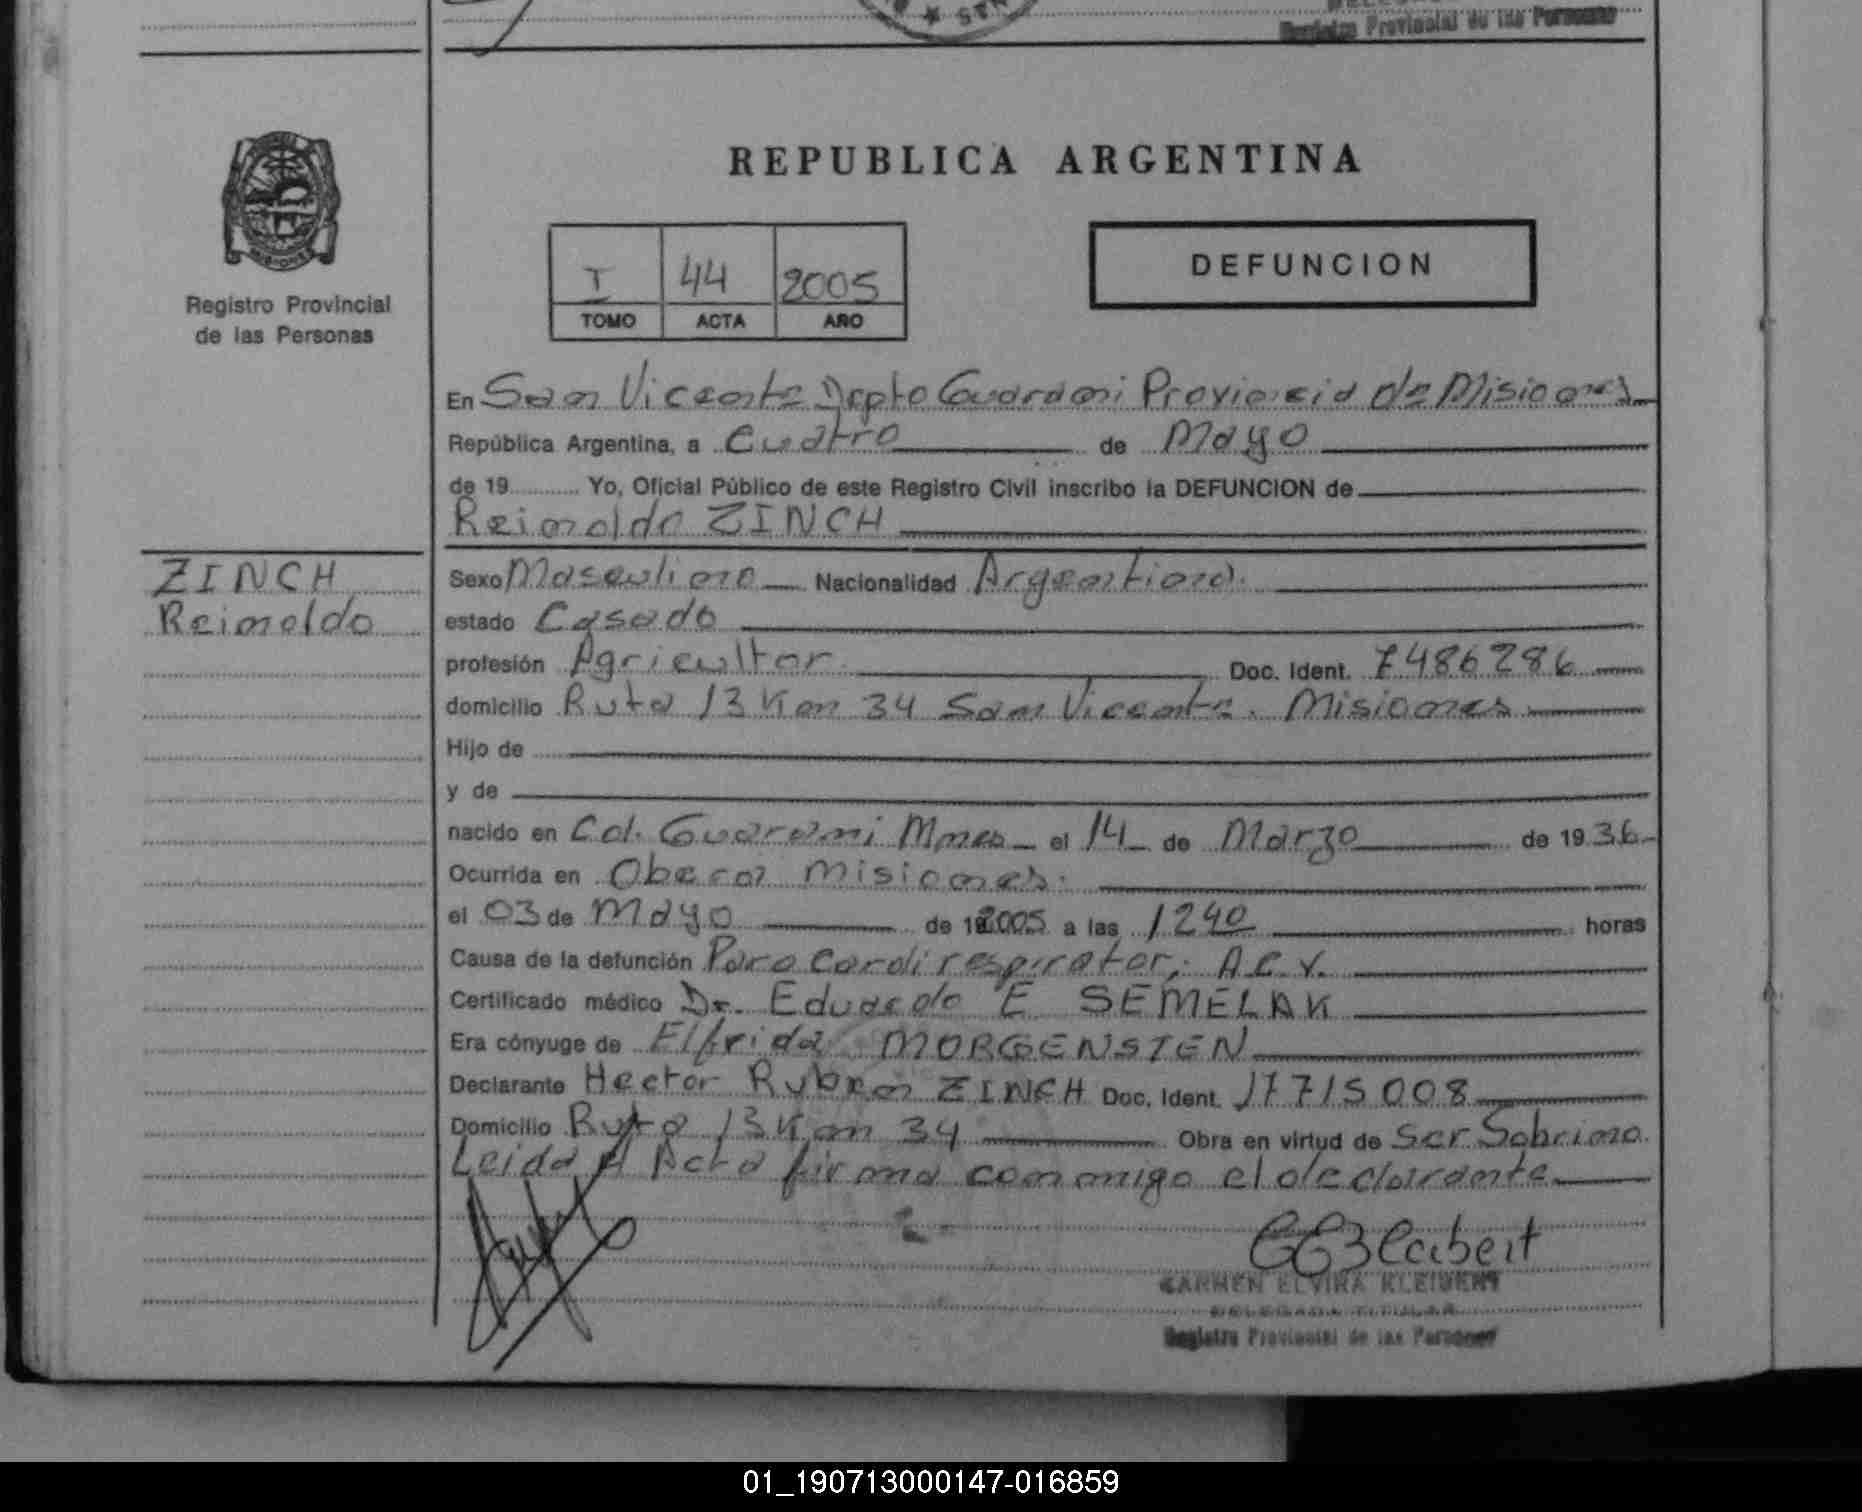 Registro Provincial de las Personas
REPUBLICA ARGENTINA
I 44 2005
TOMO ACTA AÑO
DEFUNCION
MISIONES
Registro Provincial
de las Personas
En San Vicente Depto Guarani Provincia de Misiones
República Argentina, a Cuatro de Mayo
de 19 Yo, Oficial Público de este Registro Civil inscribo la DEFUNCION de
Reinoldo ZINCH
ZINCH
Reinoldo
Sexo Masculino Nacionalidad Argentina.
estado Casado
profesión Agricultor Doc. Ident. 7486286
domicilio Ruta 13 Km 34 San Vicente. Misiones
Hijo de
y de
nacido en Col. Guarani Mnes el 14 de Marzo de 1936
Ocurrida en Obera Misiones.
el 03 de Mayo de 2005 a las 1240 horas
Causa de la defunción Paro Cardirespirator; A.C.V.
Certificado médico Dr. Eduardo E SEMELAK
Era cónyuge de Elfrida MORGENSTEN
Declarante Hector Ruben ZINCH Doc. Ident. 17715008
Domicilio Ruta 13 Km 34 Obra en virtud de Ser Sobrino.
Leida el Acta firma conmigo el declarante
CARMEN ELVIRA KLEIBERT
DELEGADA TITULAR
Registro Provincial de las Personas
01_190713000147-016859